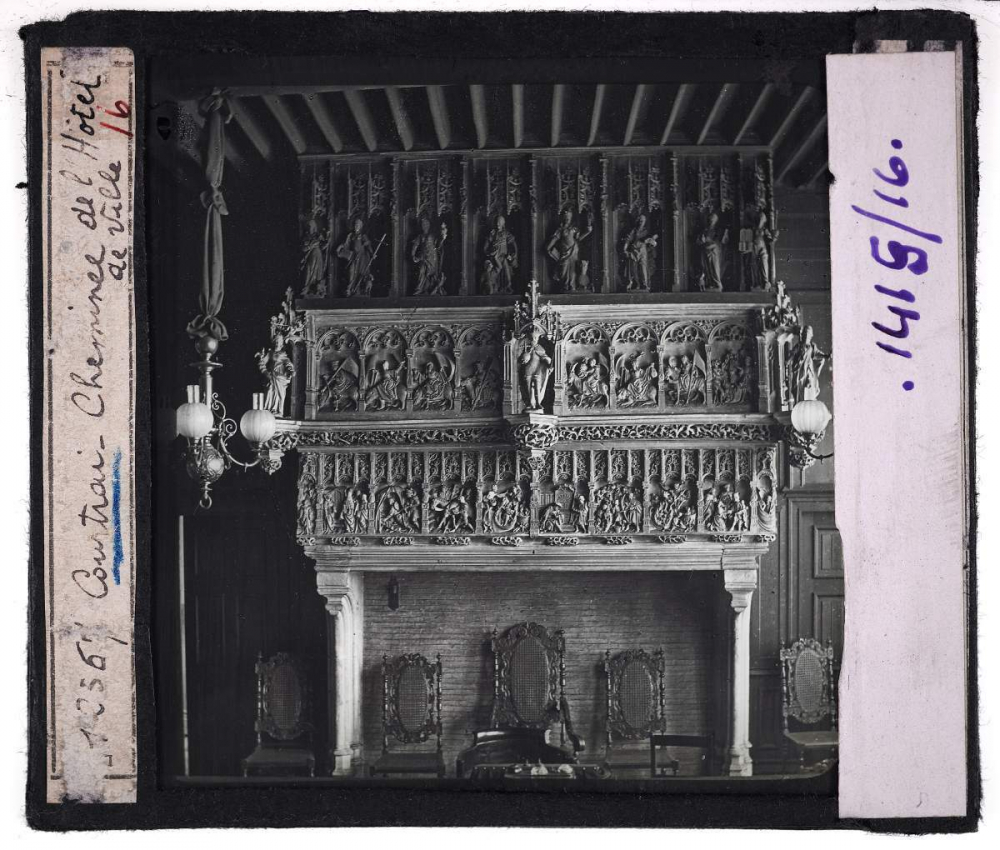 12367 Courtrai - Cheminée de l'Hôtel
de Ville
16
. 141 G/16 .